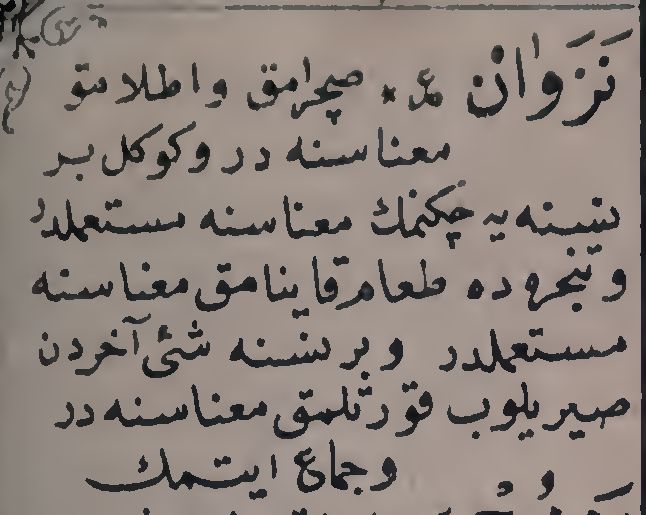 نَزَوَان ع * صچرامق واطلامق
معناسنه در وکوکل بر
نسنه یه چکنمك معناسنه مستعملدر
وتنجره ده طعام قاینامق معناسنه
مستعملدر وبر نسنه شئ آخردن
صیریلوب قورتلمق معناسنه در
وجماع ایتمك